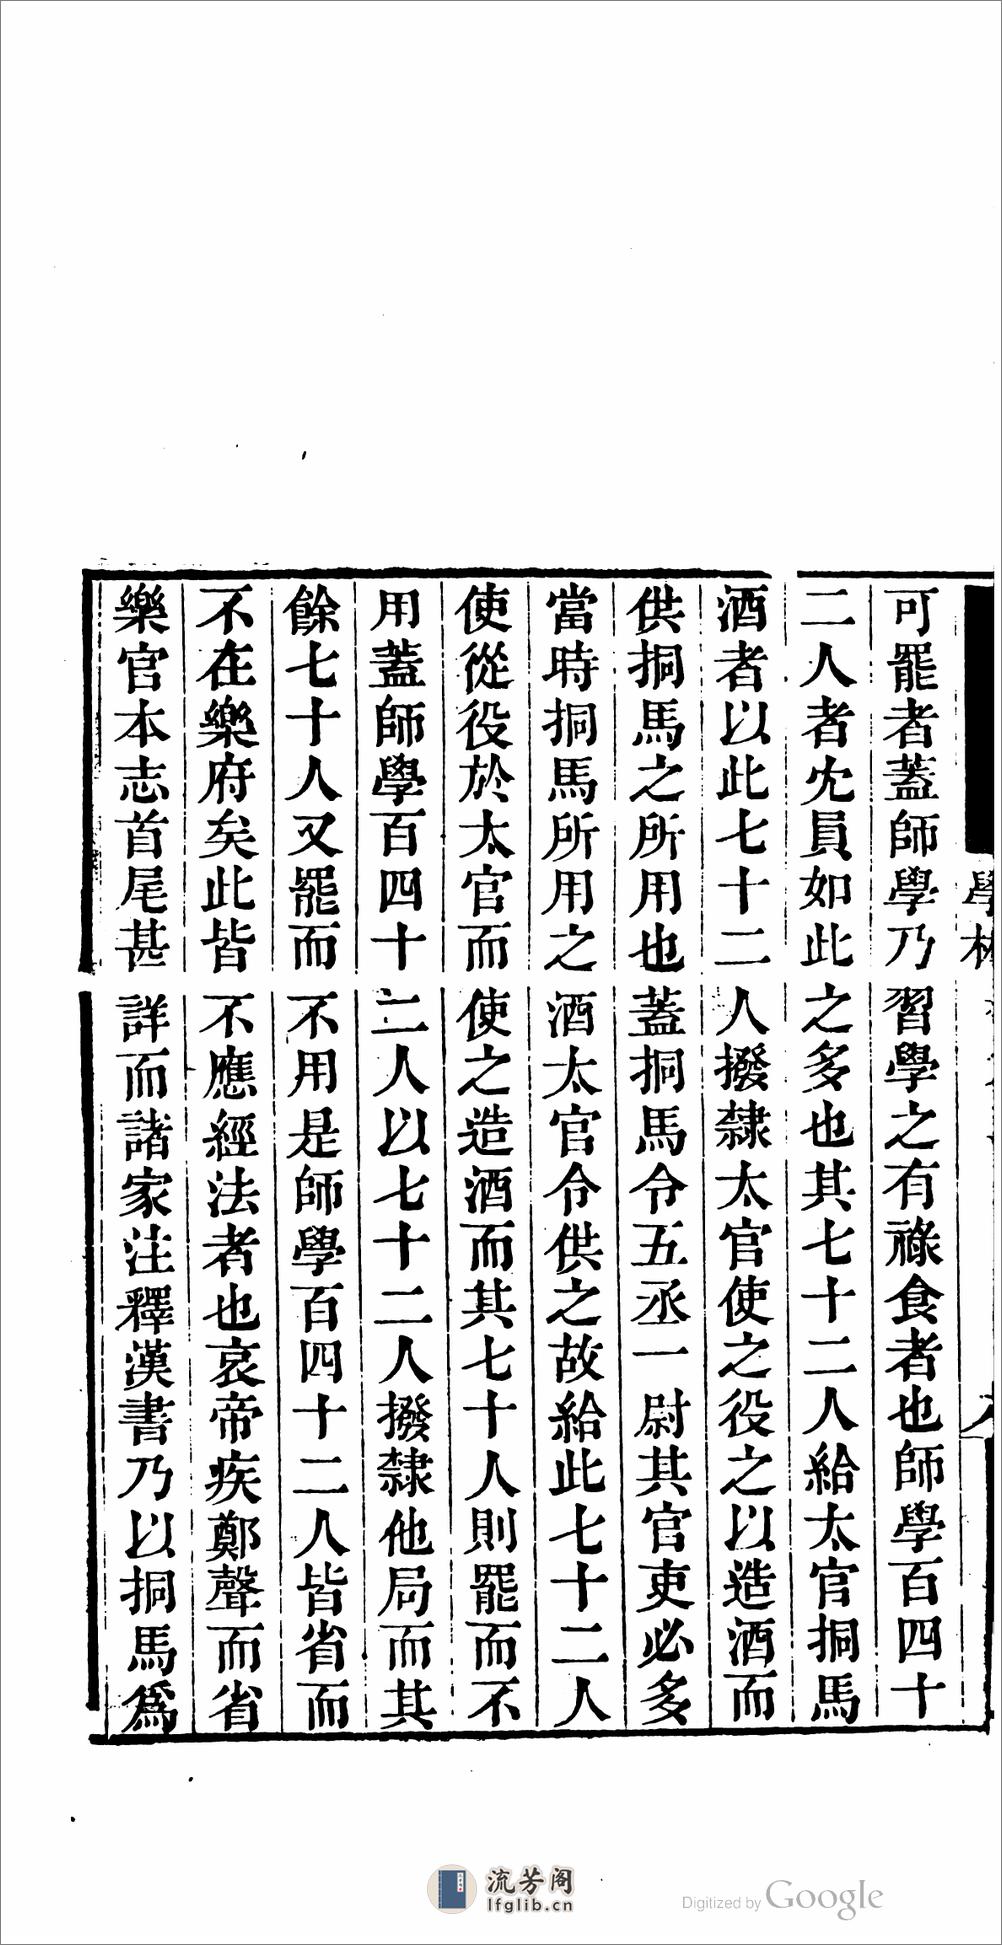 可罷者蓋師學乃習學之有祿食者也師學百四十
二人者宂員如此之多也其七十二人給太官挏馬
酒者以此七十二人撥隸太官使之役之以造酒而
供挏馬之所用也蓋挏馬令五丞一尉其官吏必多
當時挏馬所用之酒太官令供之故給此七十二人
使從役於太官而使之造酒而其七十人則罷而不
用蓋師學百四十二人以七十二人撥隸他局而其
餘七十人又罷而不用是師學百四十二人皆省而
不在樂府矣此皆不應經法者也哀帝疾鄭聲而省
樂官本志首尾甚詳而諸家注釋漢書乃以挏馬爲
學林
流芳阁
lfglib.cn
Digitized by Google